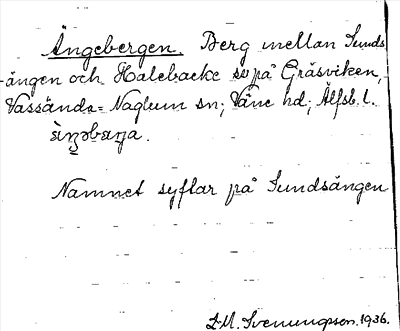 Ängebergen. Berg mellan Sunds-
ängen och Halebacke sv på Gräsviken,
Vassända-Naglum sn; Väne hd; Älfsb. l.
Namnet syflar på Sundsängen
1936.